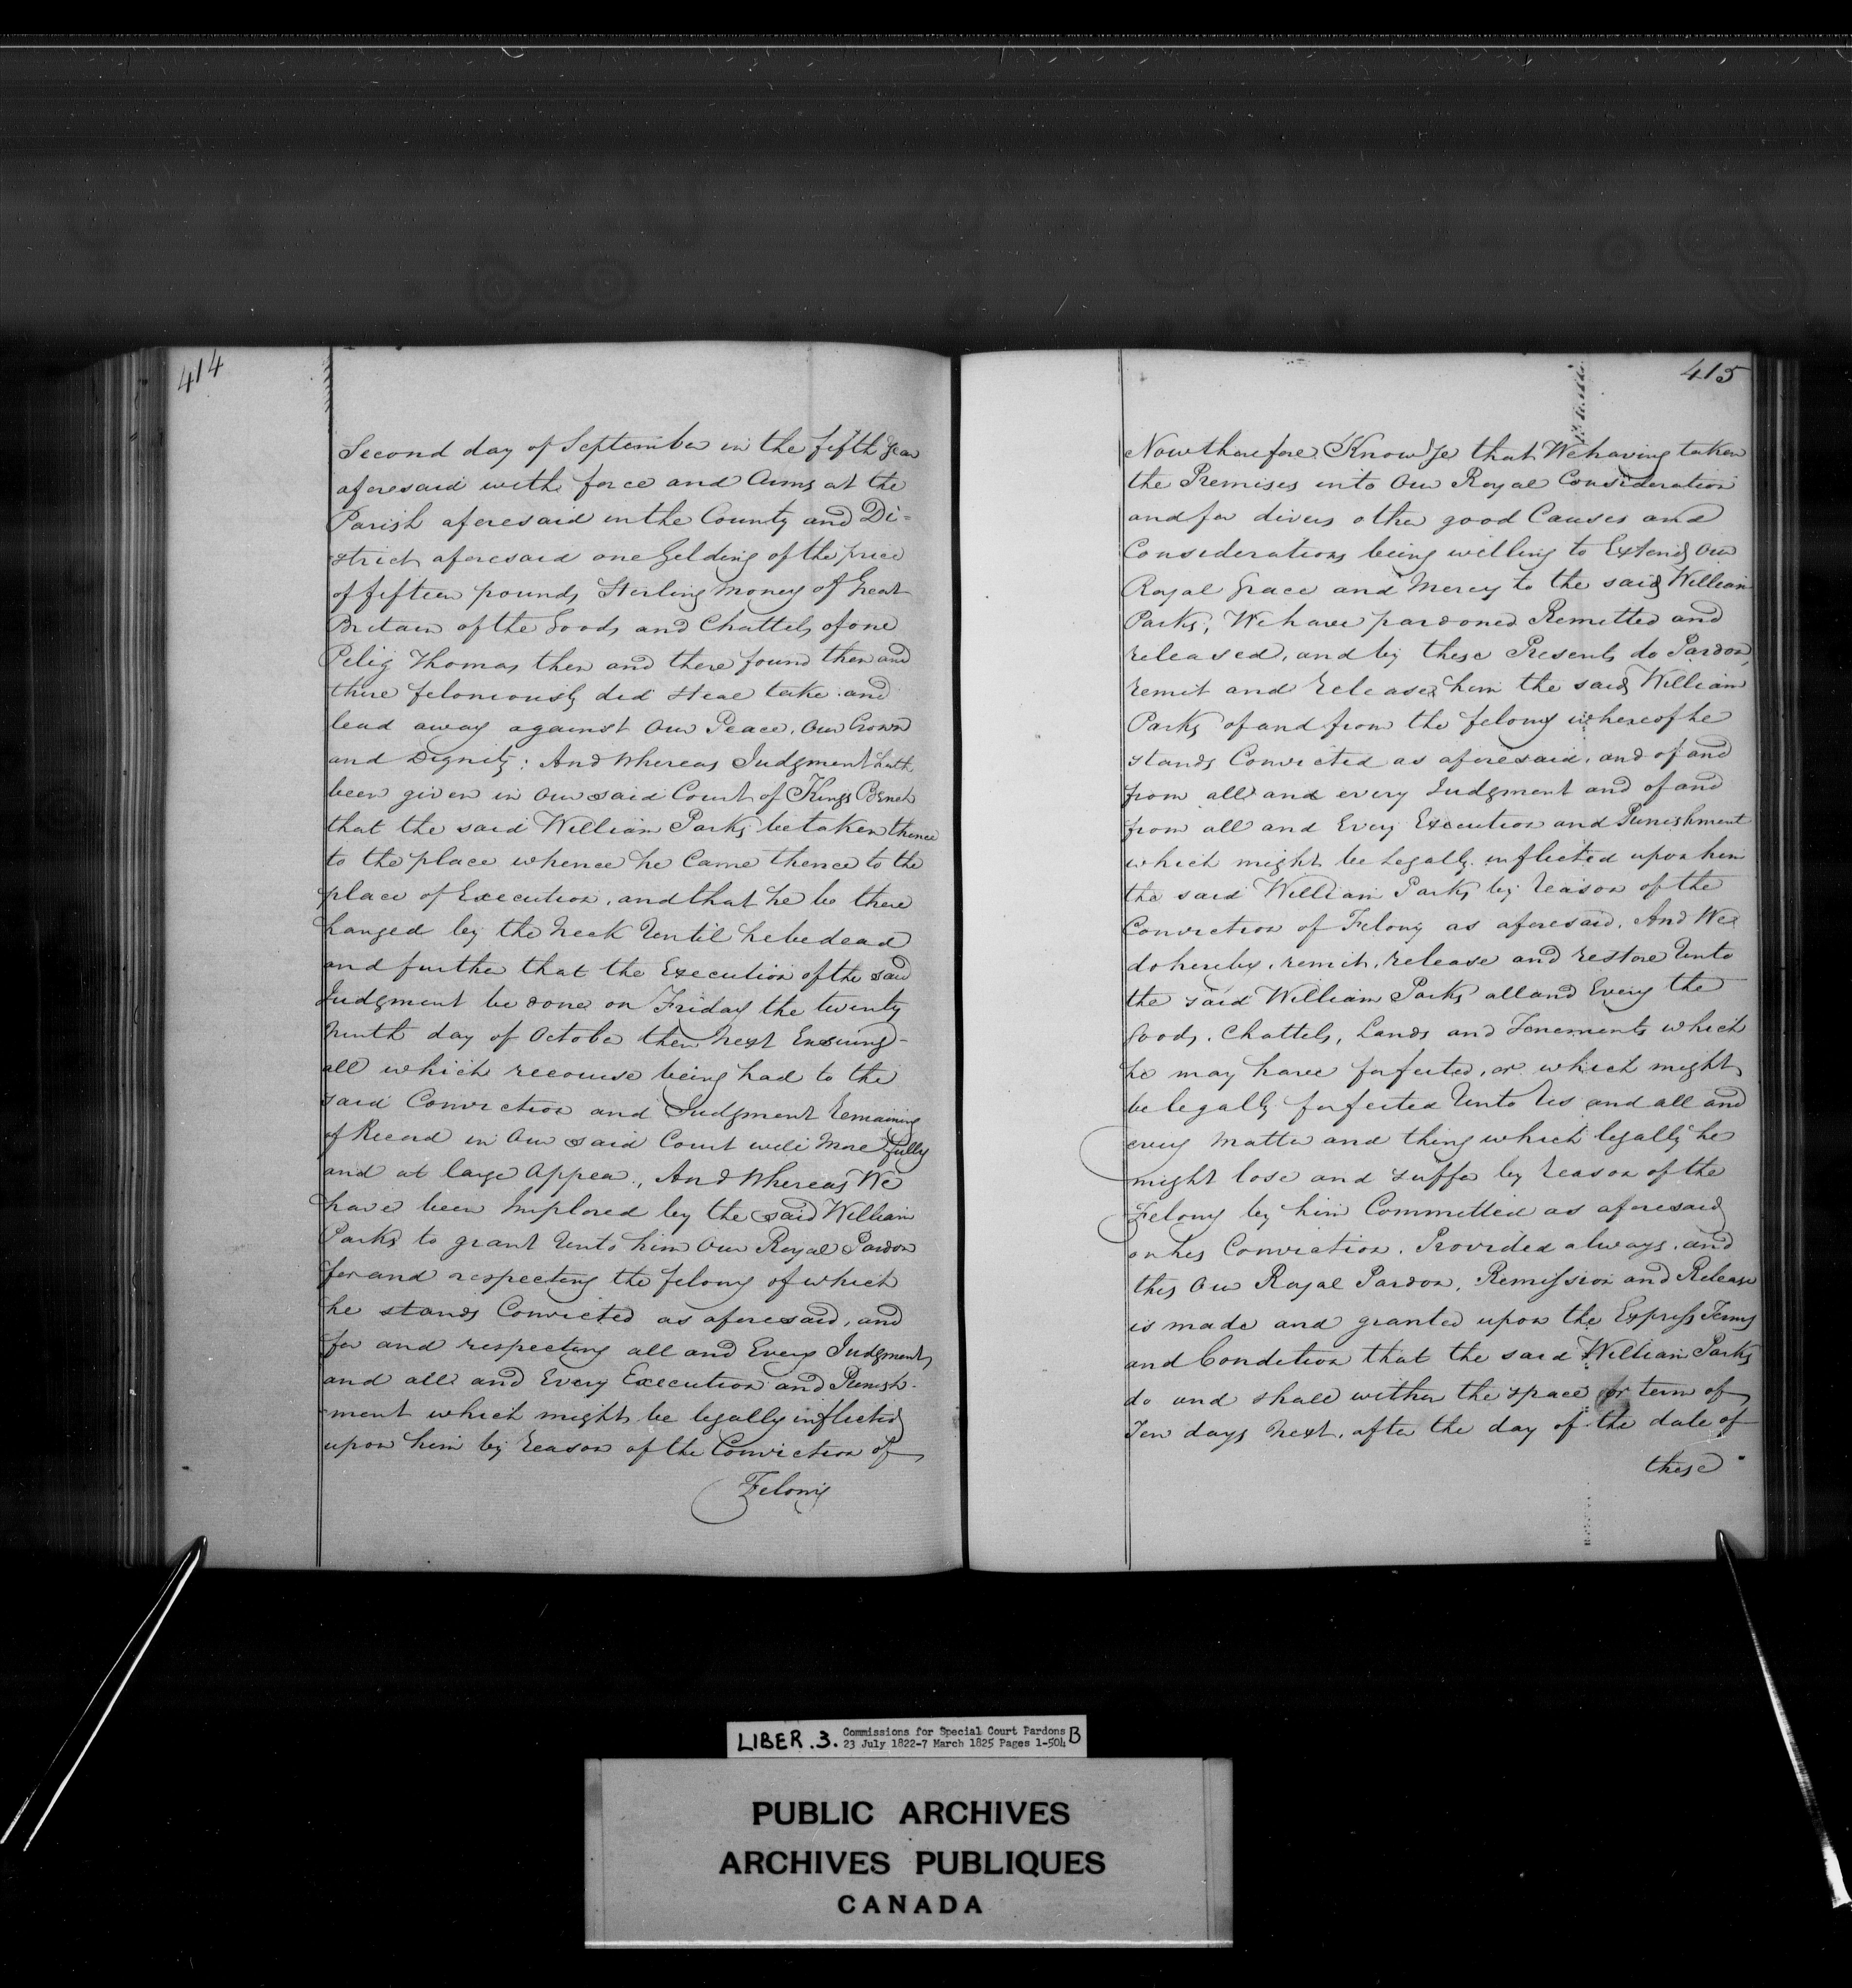 414
Second day of September in the fifth Year
aforesaid with force and Arms at the
Parish aforesaid in the County and Di=
strict aforesaid one Gelding of the price
of fifteen pounds Sterling Money of Great
Britain of the Goods and Chattels of one
Pelig Thomas then and there found then and
there feloniously did Steal take and
lead away against Our Peace, Our Crown
and Dignity; And Whereas Judgment hath
been given in Our said Court of Kings Bench
that the said William Parks be taken thence
to the place whence he Came thence to the
place of Execution, and that he be there
hanged by the Neck Until he be dead
and further that the Execution of the said
Judgment be done on Friday the twenty
Ninth day of October then Next Ensuing-
all which recourse being had to the
said Conviction and Judgment Remaining
of Record in Our said Court will More fully
and at large Appear., And Whereas We
have been Implored by the said William
Parks to grant Unto him Our Royal Pardon
for and respecting the felony of which
he stands Convicted as aforesaid, and
for and respecting all and Every Judgment,
and all and Every Execution and Punish-
ment which might be legally inflicted
upon him by Reason of the Conviction of
Felony
415
Now therefore Know Ye that We having taken
the Premises into Our Royal Consideration
and for divers other good Causes and
Considerations being willing to Extend Our
Royal Grace and Mercy to the said William
Parks, We have pardoned Remitted and
released, and by these Presents do Pardon,
remit and Release him the said William
Parks of and from the felony whereof he
stands Convicted as aforesaid, and of and
from all and every Judgment and of and
from all and Every Execution and Punishment
which might be Legally inflicted upon him
the said William Parks by Reason of the
Conviction of Felony as aforesaid. And We
do hereby, remit, release and restore Unto
the said William Parks all and Every the
Goods, Chattels, Lands and Tenements which
he may have forfeited, or which might
be legally forfeited Unto Us and all and
every Matter and thing which legally he
might lose and suffer by Reason of the
Felony by him Committed as aforesaid
or his Conviction. Provided always, and
this Our Royal Pardon, Remission and Release
is made and granted upon the Express Terms
and Condition that the said William Parks
do and shall within the space or term of
Ten days Next, after the day of the date of
these
LIBER .3. Commissions for Special Court Pardons B
23 July 1822-7 March 1825 Pages 1-504
PUBLIC ARCHIVES
ARCHIVES PUBLIQUES
CANADA